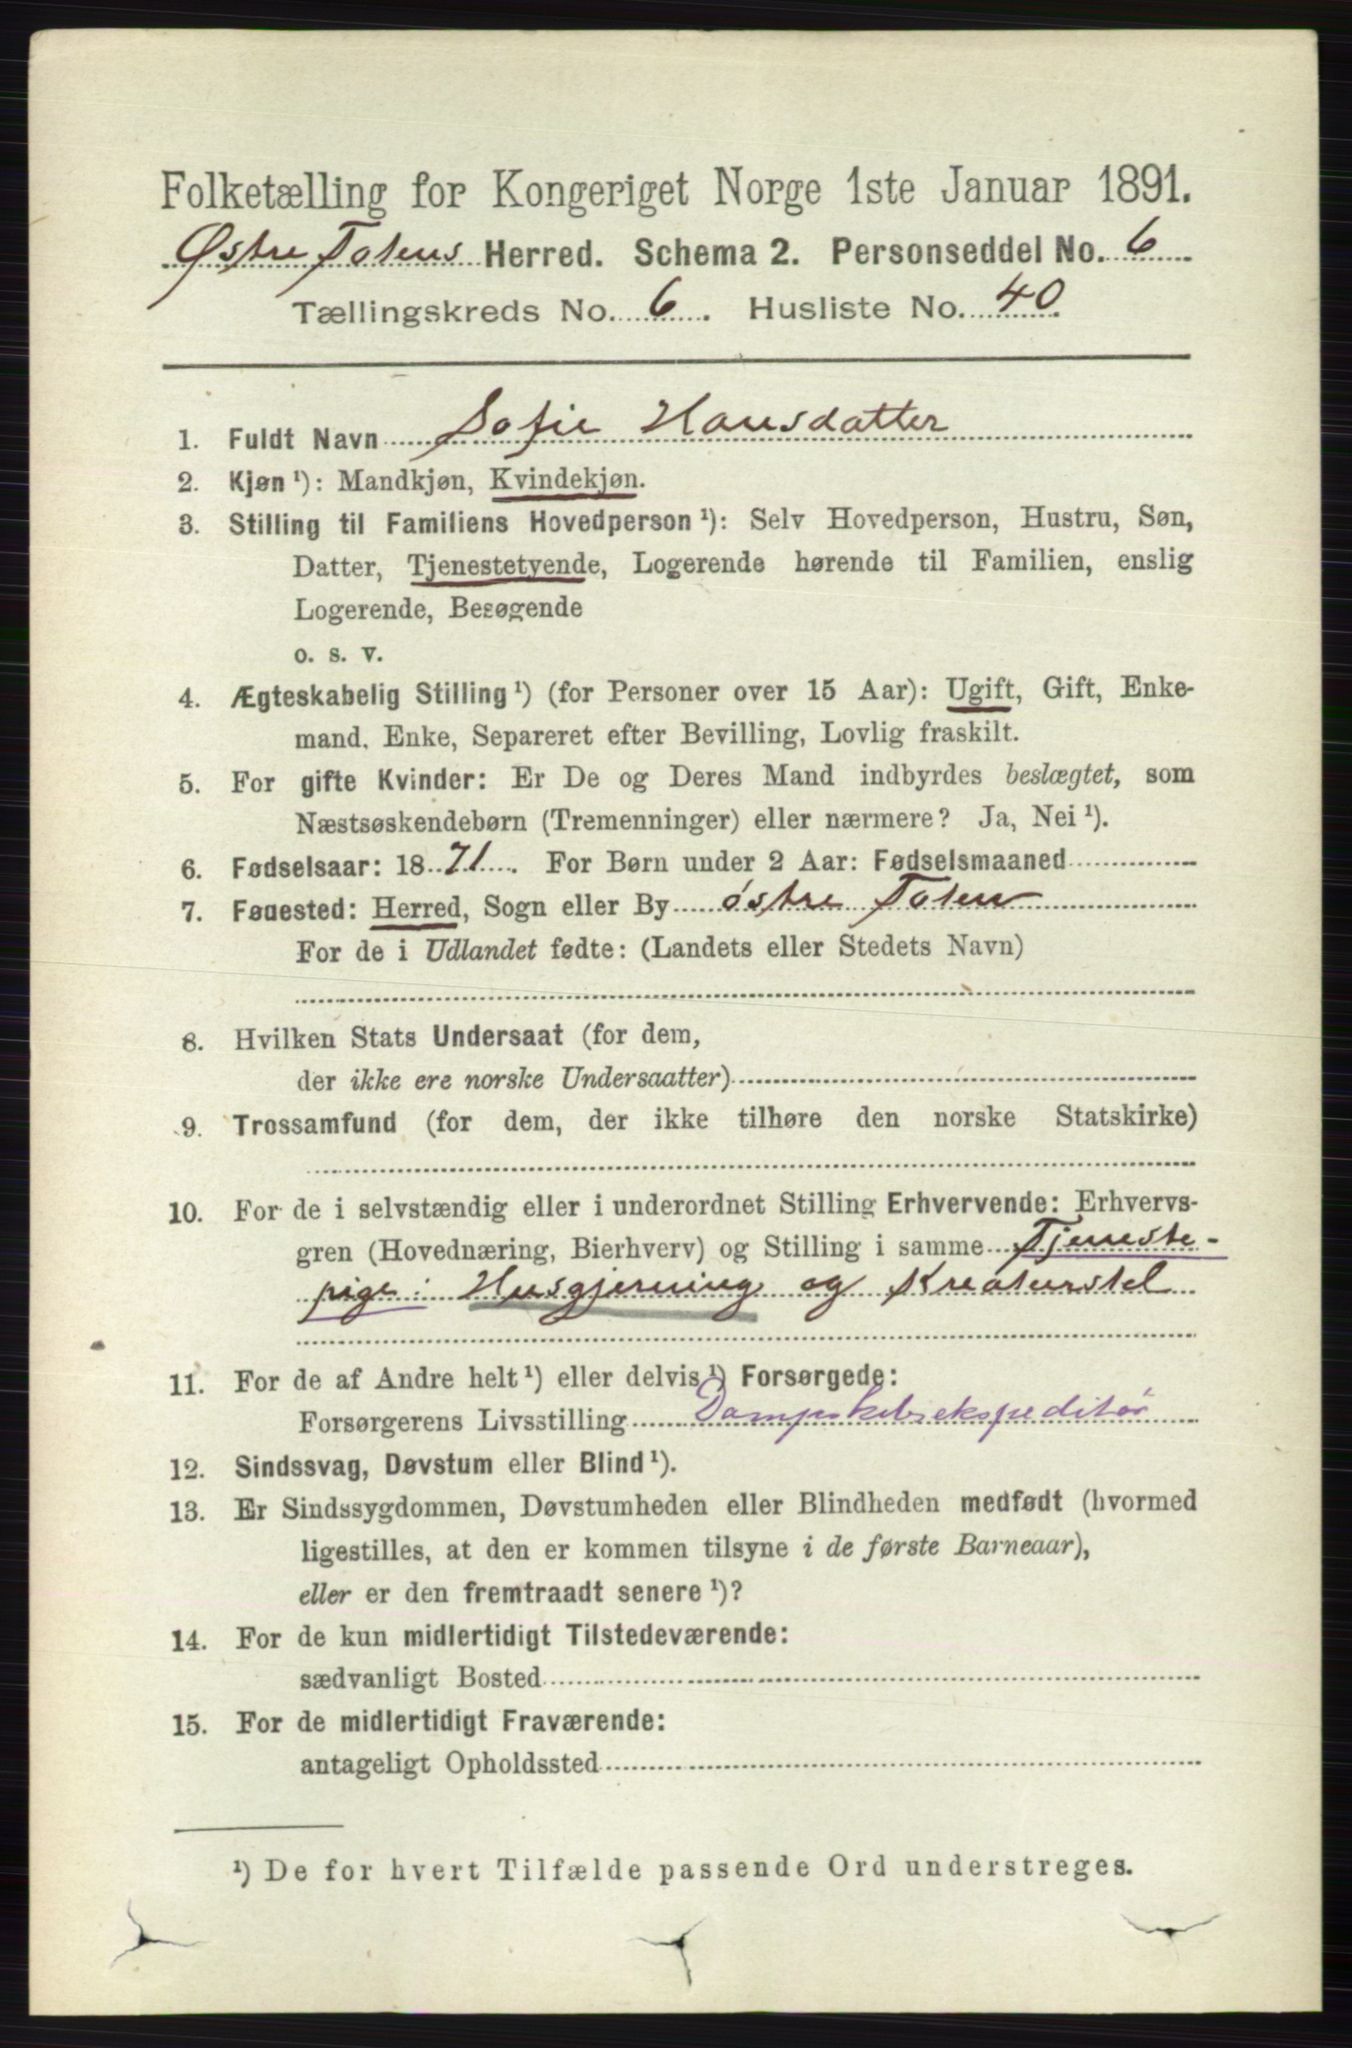 Folketælling for Kongeriget Norge 1ste Januar 1891.
Østre Totens Herred. Schema 2. Personseddel No. 6
Tællingskreds No. 6. Husliste No. 40.
1. Fuldt Navn Sofie Hansdatter
2. Kjøn ¹): Mandkjøn, Kvindekjøn.
3. Stilling til Familiens Hovedperson ¹): Selv Hovedperson, Hustru, Søn,
Datter, Tjenestetyende, Logerende hørende til Familien, enslig
Logerende, Besøgende
o. s. v.
4. Ægteskabelig Stilling ¹) (for Personer over 15 Aar): Ugift, Gift, Enke-
mand, Enke, Separeret efter Bevilling, Lovlig fraskilt.
5. For gifte Kvinder: Er De og Deres Mand indbyrdes beslægtet, som
Næstsøskendebørn (Tremenninger) eller nærmere? Ja, Nei ¹).
6. Fødselsaar: 1871. For Børn under 2 Aar: Fødselsmaaned
7. Fødested: Herred, Sogn eller By østre Toten
For de i Udlandet fødte: (Landets eller Stedets Navn)
8. Hvilken Stats Undersaat (for dem,
der ikke ere norske Undersaatter)
9. Trossamfund (for dem, der ikke tilhøre den norske Statskirke)
10. For de i selvstændig eller i underordnet Stilling Erhvervende: Erhvervs-
gren (Hovednæring, Bierhverv) og Stilling i samme Tjeneste-
pige: Husgjerning og Kreaturstel
11. For de af Andre helt ¹) eller delvis ¹) Forsørgede:
Forsørgerens Livsstilling Dampskibsekspeditør
12. Sindssvag, Døvstum eller Blind ¹).
13. Er Sindssygdommen, Døvstumheden eller Blindheden medfødt (hvormed
ligestilles, at den er kommen tilsyne i de første Barneaar),
eller er den fremtraadt senere ¹)?
14. For de kun midlertidigt Tilstedeværende:
sædvanligt Bosted
15. For de midlertidigt Fraværende:
antageligt Opholdssted
¹) De for hvert Tilfælde passende Ord understreges.